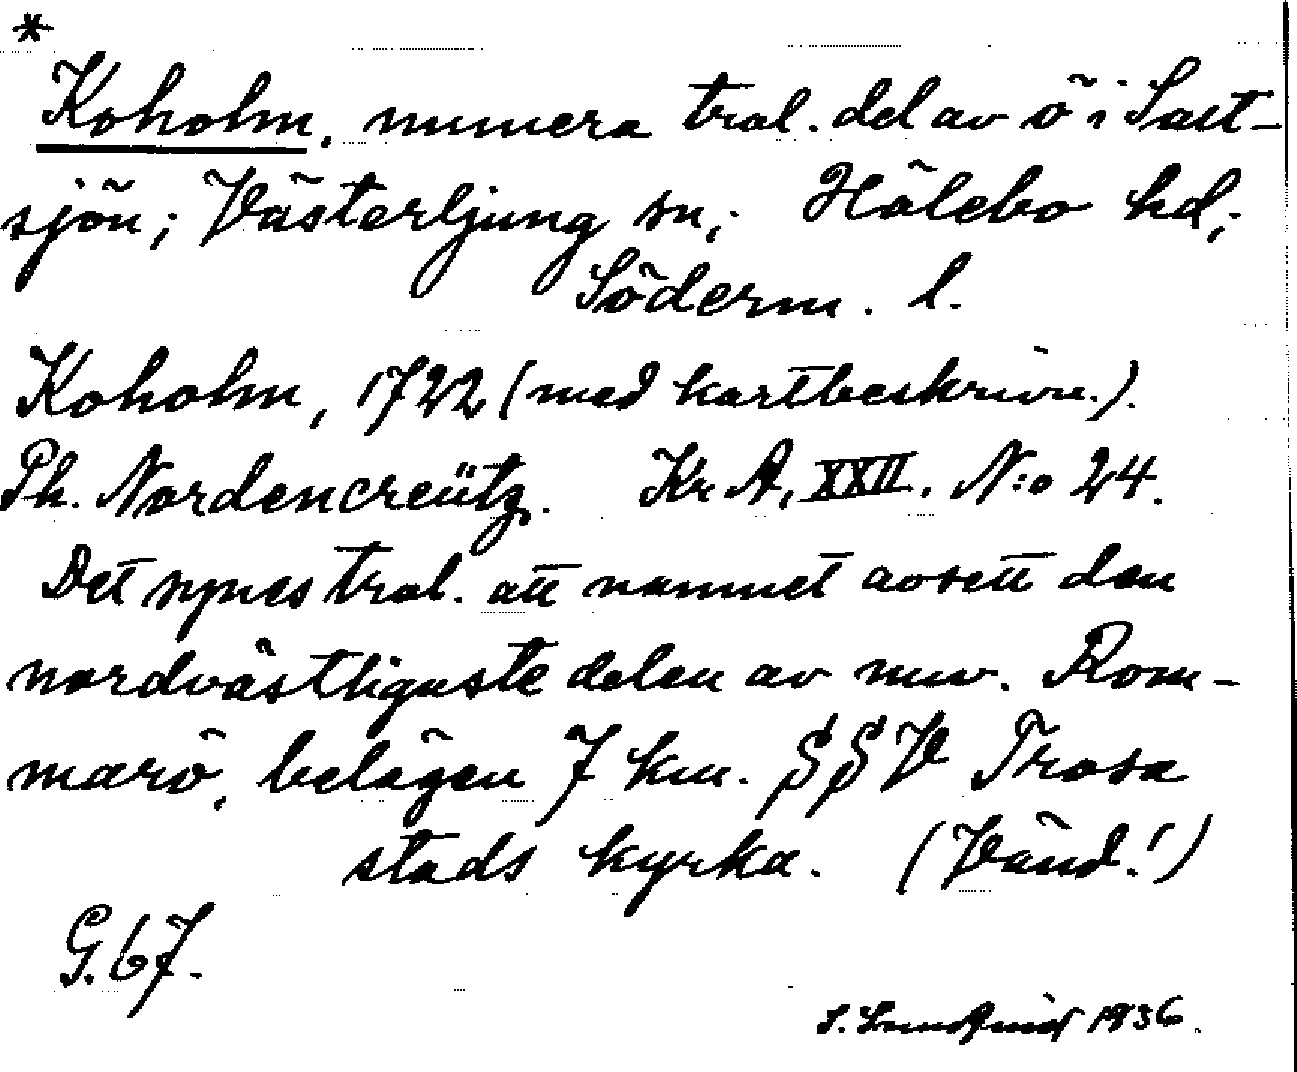 *
Koholm, numera trol. del av ö i Salt-
sjön; Västerljung sn; Hölebo hd;
Söderm. l.
Koholm, 1722 (med kartbeskrivn.).
Ph. Nordencreütz. Kr A, XXII. N:o 24.
Det synes trol. att namnet avsett den
nordvästligaste delen av nuv. Rom-
marö, belägen 7 km. SSV Trosa
stads kyrka. (Vänd!)
G. 67.
S. Lundqvist 1936.